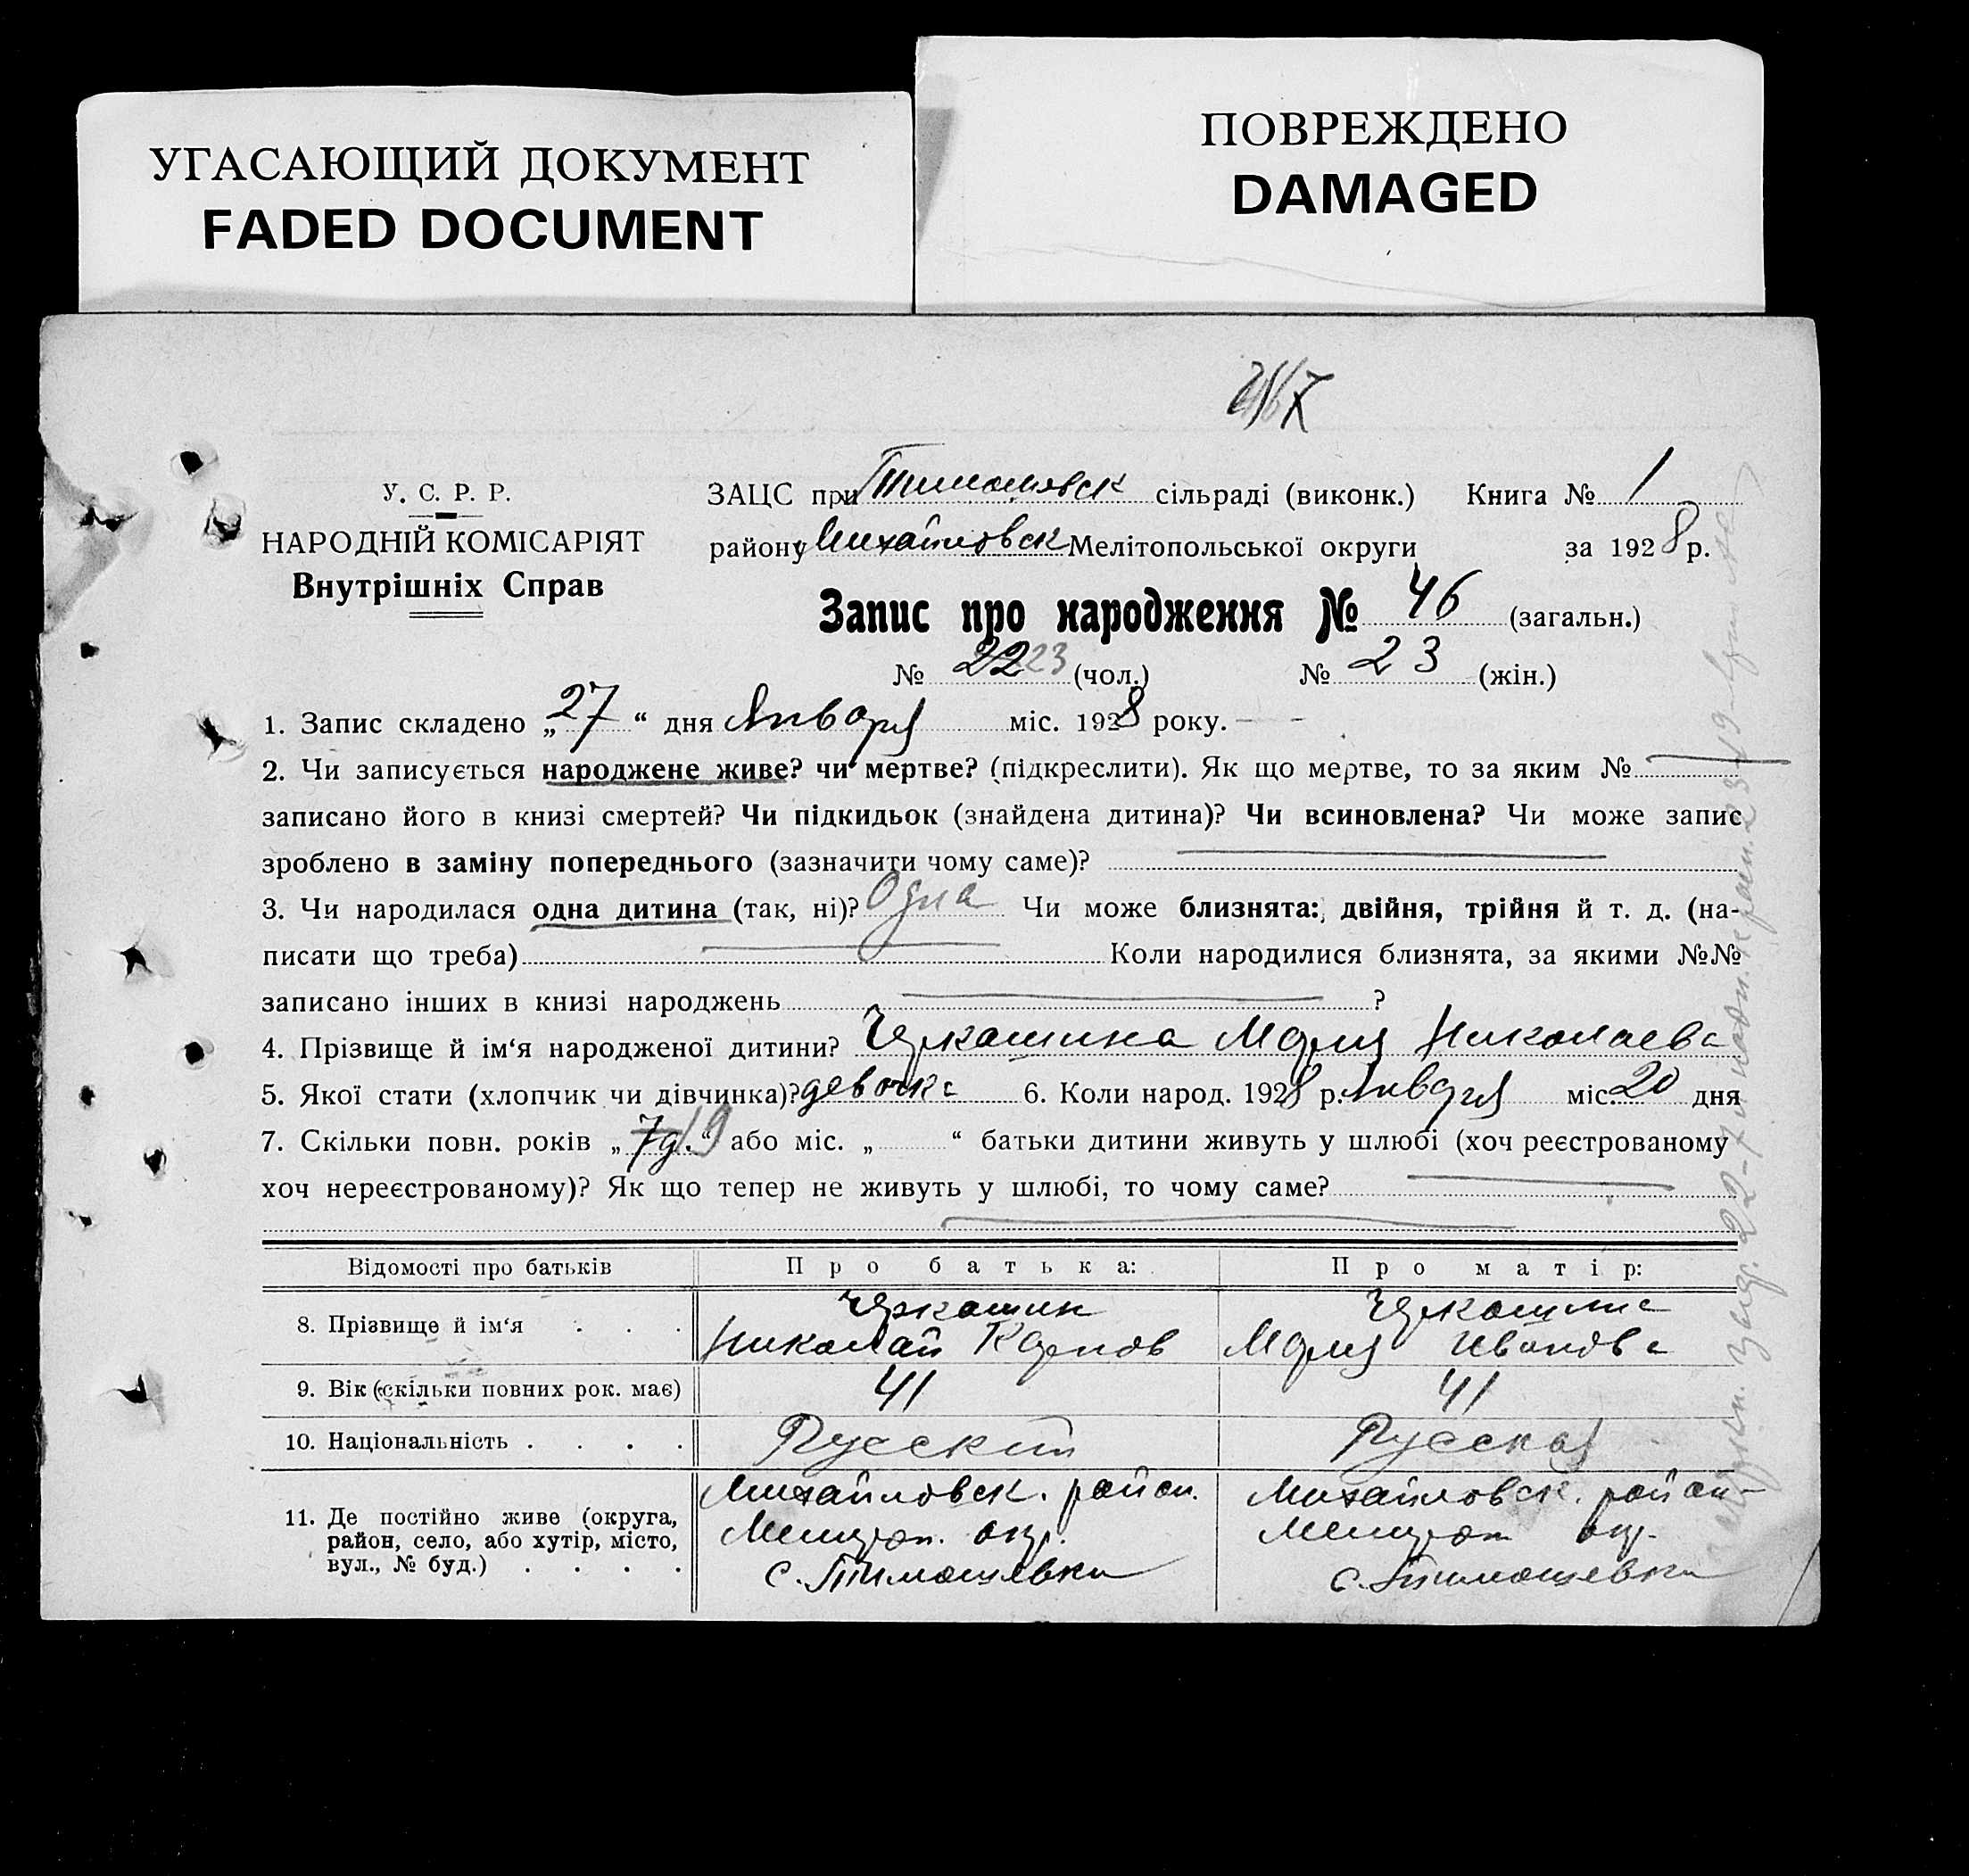 УГАСАЮЩИЙ ДОКУМЕНТ
FADED DOCUMENT
ПОВРЕЖДЕНО
DAMAGED
У. С. Р. Р.
НАРОДНІЙ КОМІСАРІЯТ
Внутрішніх Справ
ЗАЦС при Тимошевск сільраді (виконк.) Книга № 1
району Михайловск Мелітопольської округи за 1928 р.
Запис про народження № 46 (загальн.)
№ 22 23 (чол.) № 23 (жін.)
1. Запис складено „27“ дня Января міс. 1928 року.
2. Чи записується народжене живе? чи мертве? (підкреслити). Як що мертве, то за яким №
записано його в книзі смертей? Чи підкидьок (знайдена дитина)? Чи всиновлена? Чи може запис
зроблено в заміну попереднього (зазначити чому саме)?
3. Чи народилася одна дитина (так, ні)? Одна Чи може близнята: двійня, трійня й т. д. (на-
писати що треба) Коли народилися близнята, за якими №№
записано інших в книзі народжень ?
4. Прізвище й ім'я народженої дитини? Черкашина Мария Николаева
5. Якої стати (хлопчик чи дівчинка)? девочка 6. Коли народ. 1928 р. Января міс. 20 дня
7. Скільки повн. років „ 19“ або міс. „ “ батьки дитини живуть у шлюбі (хоч реєстрованому
хоч нереєстрованому)? Як що тепер не живуть у шлюбі, то чому саме?
Відомості про батьків Про батька: Про матір:
8. Прізвище й ім‘я Черкашин Черкашина
Николай Карпов Мария Иванова
9. Вік (скільки повних рок. має) 41 41
10. Національність Русский Русская
11. Де постійно живе (округа, район, село, або хутір, місто, вул., № буд.) Михайловск. район. Михайловск. район
Мелитоп. окр. Мелитоп окр.
с. Тимошевки с. Тимошевки